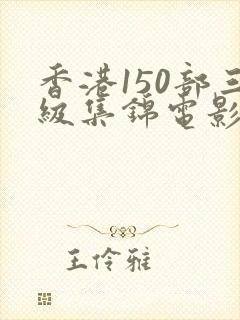 香港150部三
級集錦電影
王伶雅